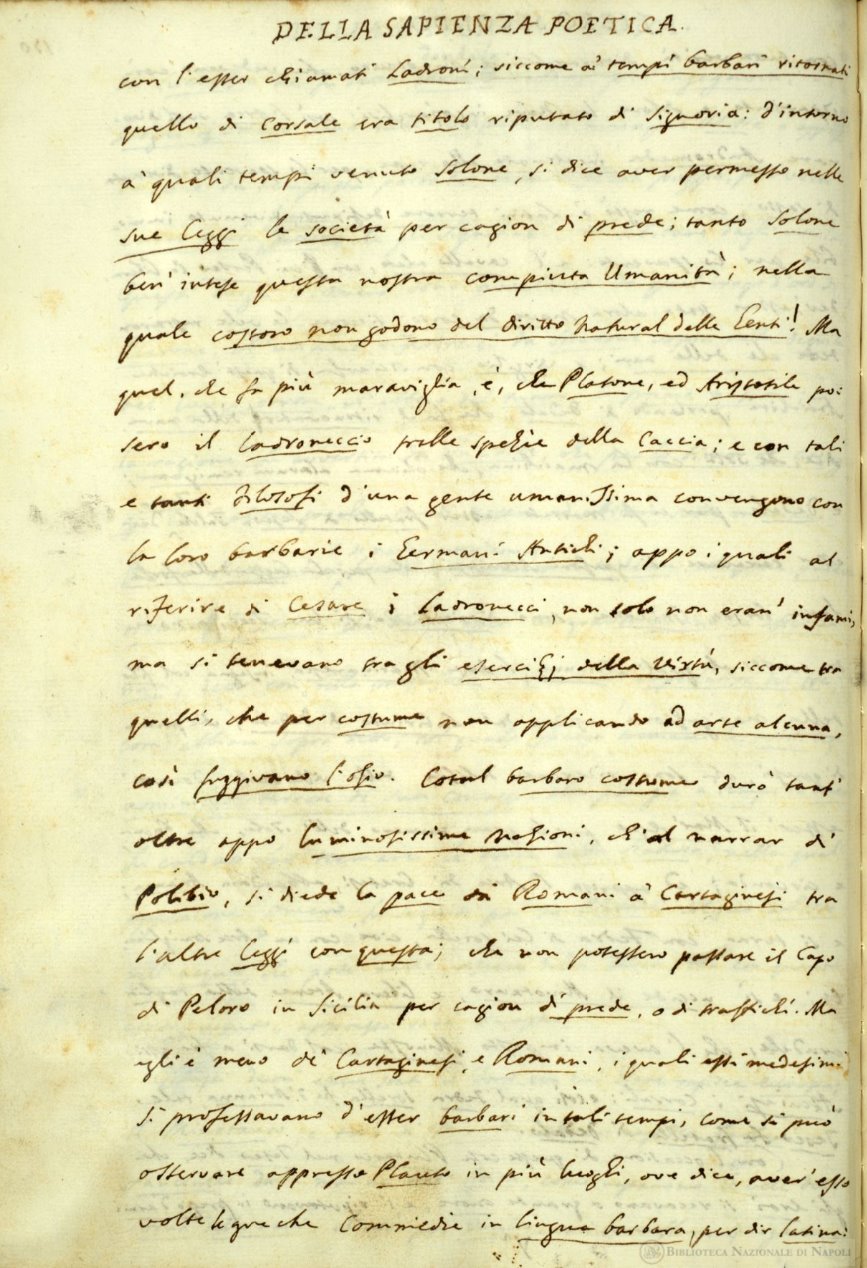 DELLA SAPIENZA POETICA.
con l'esser chiamati Ladroni; siccome a' tempi barbari ritornati
quello di Corsale era titolo riputato di Signoria: d'intorno
a' quali tempi venuto Solone, si dice aver permesso nelle
sue Leggi le società per cagion di prede; tanto Solone
ben' intese questa nostra compiuta Umanità; nella
quale costoro non godono del diritto Natural delle Genti! Ma
quel, che fa più maraviglia, è, che Platone, ed Aristotile po-
sero il Ladroneccio fralle spezie della Caccia; e con tali
e tanti Filosofi d'una gente umanissima convengono con
la loro barbarie i Germani Antichi; appo i quali al
riferire di Cesare i Ladronecci, non solo non eran' infami,
ma si tenevano tra gli esercizj della virtù, siccome tra
quelli, che per costume non applicando ad arte alcuna,
così fuggivano l'ozio. Cotal barbaro costume durò tant'
oltre appo luminosissime Nazioni, ch'al narrar di
Polibio, si diede la pace da' Romani a' Cartaginesi tra
l'altre Leggi con questa; che non potessero passare il Capo
di Peloro in Sicilia per cagion di prede, o di traffichi. Ma
egli è meno de' Cartaginesi, e Romani, i quali essi medesimi
si professavano d'esser barbari in tali tempi, come si può
osservare appresso Plauto in più luoghi, ove dice, aver' esso
volte le greche Commedie in lingua barbara, per dir latina:
BIBLIOTECA NAZIONALE DI NAPOLI